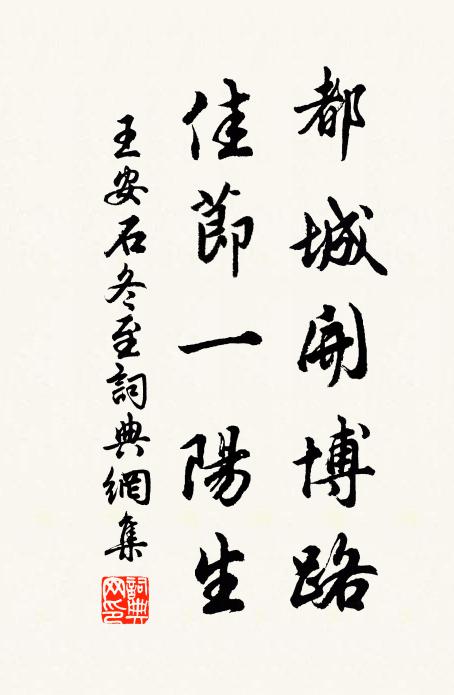 都城開博路
佳節一陽生
王安石冬至詞典網集
詞典网印